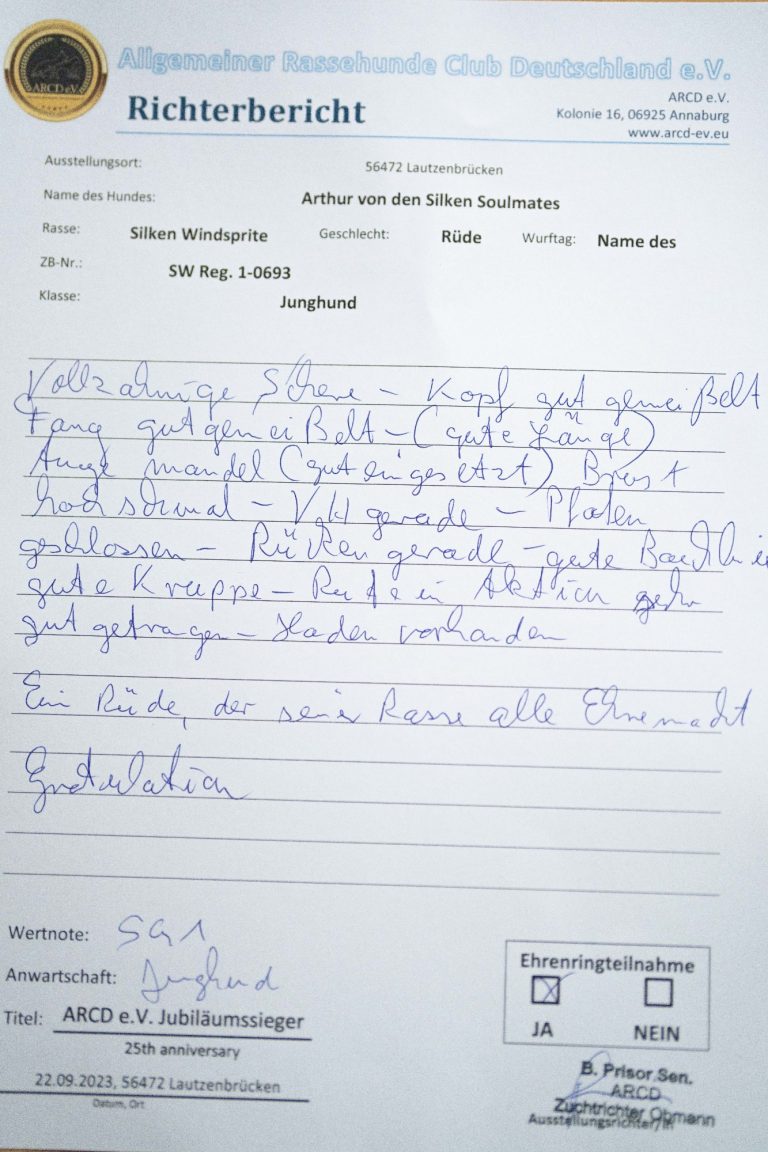 ARCD e.V.
Allgemeiner Rassehunde Club Deutschland e.V.
Richterbericht
ARCD e.V.
Kolonie 16, 06925 Annaburg
www.arcd-ev.eu
Ausstellungsort: 56472 Lautzenbrücken
Name des Hundes: Arthur von den Silken Soulmates
Rasse: Silken Windsprite Geschlecht: Rüde Wurftag: Name des
ZB-Nr.: SW Reg. 1-0693
Klasse: Junghund
Vollzahnige Schere – Kopf gut gemeißelt
Fang gut gemeißelt – (gute Länge)
Auge mandel (gut eingesetzt) Brust
noch schmal – V.H gerade – Pfoten
geschlossen – Rücken gerade – gute
gute Kruppe – Rute in Aktion
gut getragen – Hoden vorhanden
Ein Rüde, der seiner Rasse alle Ehre macht
Gratulation
Wertnote: SG 1
Anwartschaft: Junghund
Titel: ARCD e.V. Jubiläumssieger
25th anniversary
22.09.2023, 56472 Lautzenbrücken
Datum, Ort
Ehrenringteilnahme
JA NEIN
B. Prisor Sen.
ARCD
Zuchtrichter Obmann
Ausstellungsrichter/in